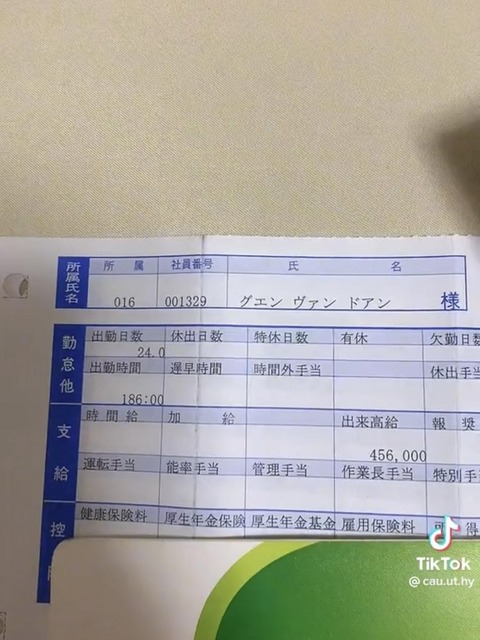 所属氏名
所 属 社員番号 氏 名
016 001329 グエン ヴァン ドアン 様
勤怠他
出勤日数 休出日数 特休日数 有休 欠勤日数
24.0
出勤時間 遅早時間 時間外手当 休出手
186:00
支給
時間給 加 給 出来高給 報 奨
456,000
運転手当 能率手当 管理手当 作業長手当 特別手
控
健康保険料 厚生年金保険 厚生年金基金 雇用保険料 得
TikTok
@ cau.ut.hy